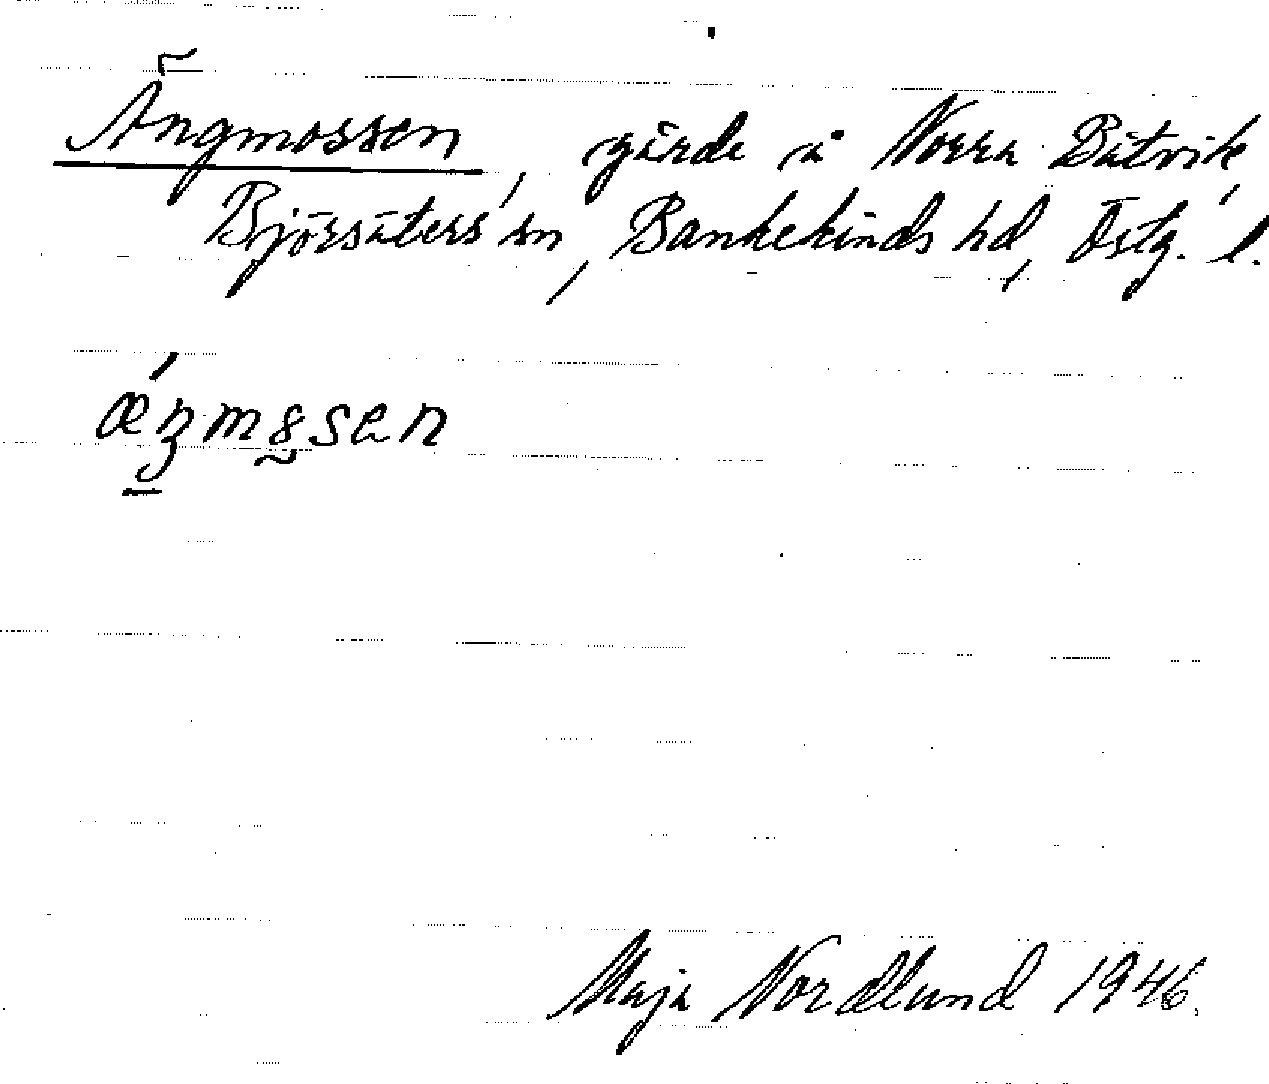 Ängmossen, gärde å Norra Båtvik,
Björsäters sn, Bankekinds hd, Östg. l.
Maja Nordlund 1946.